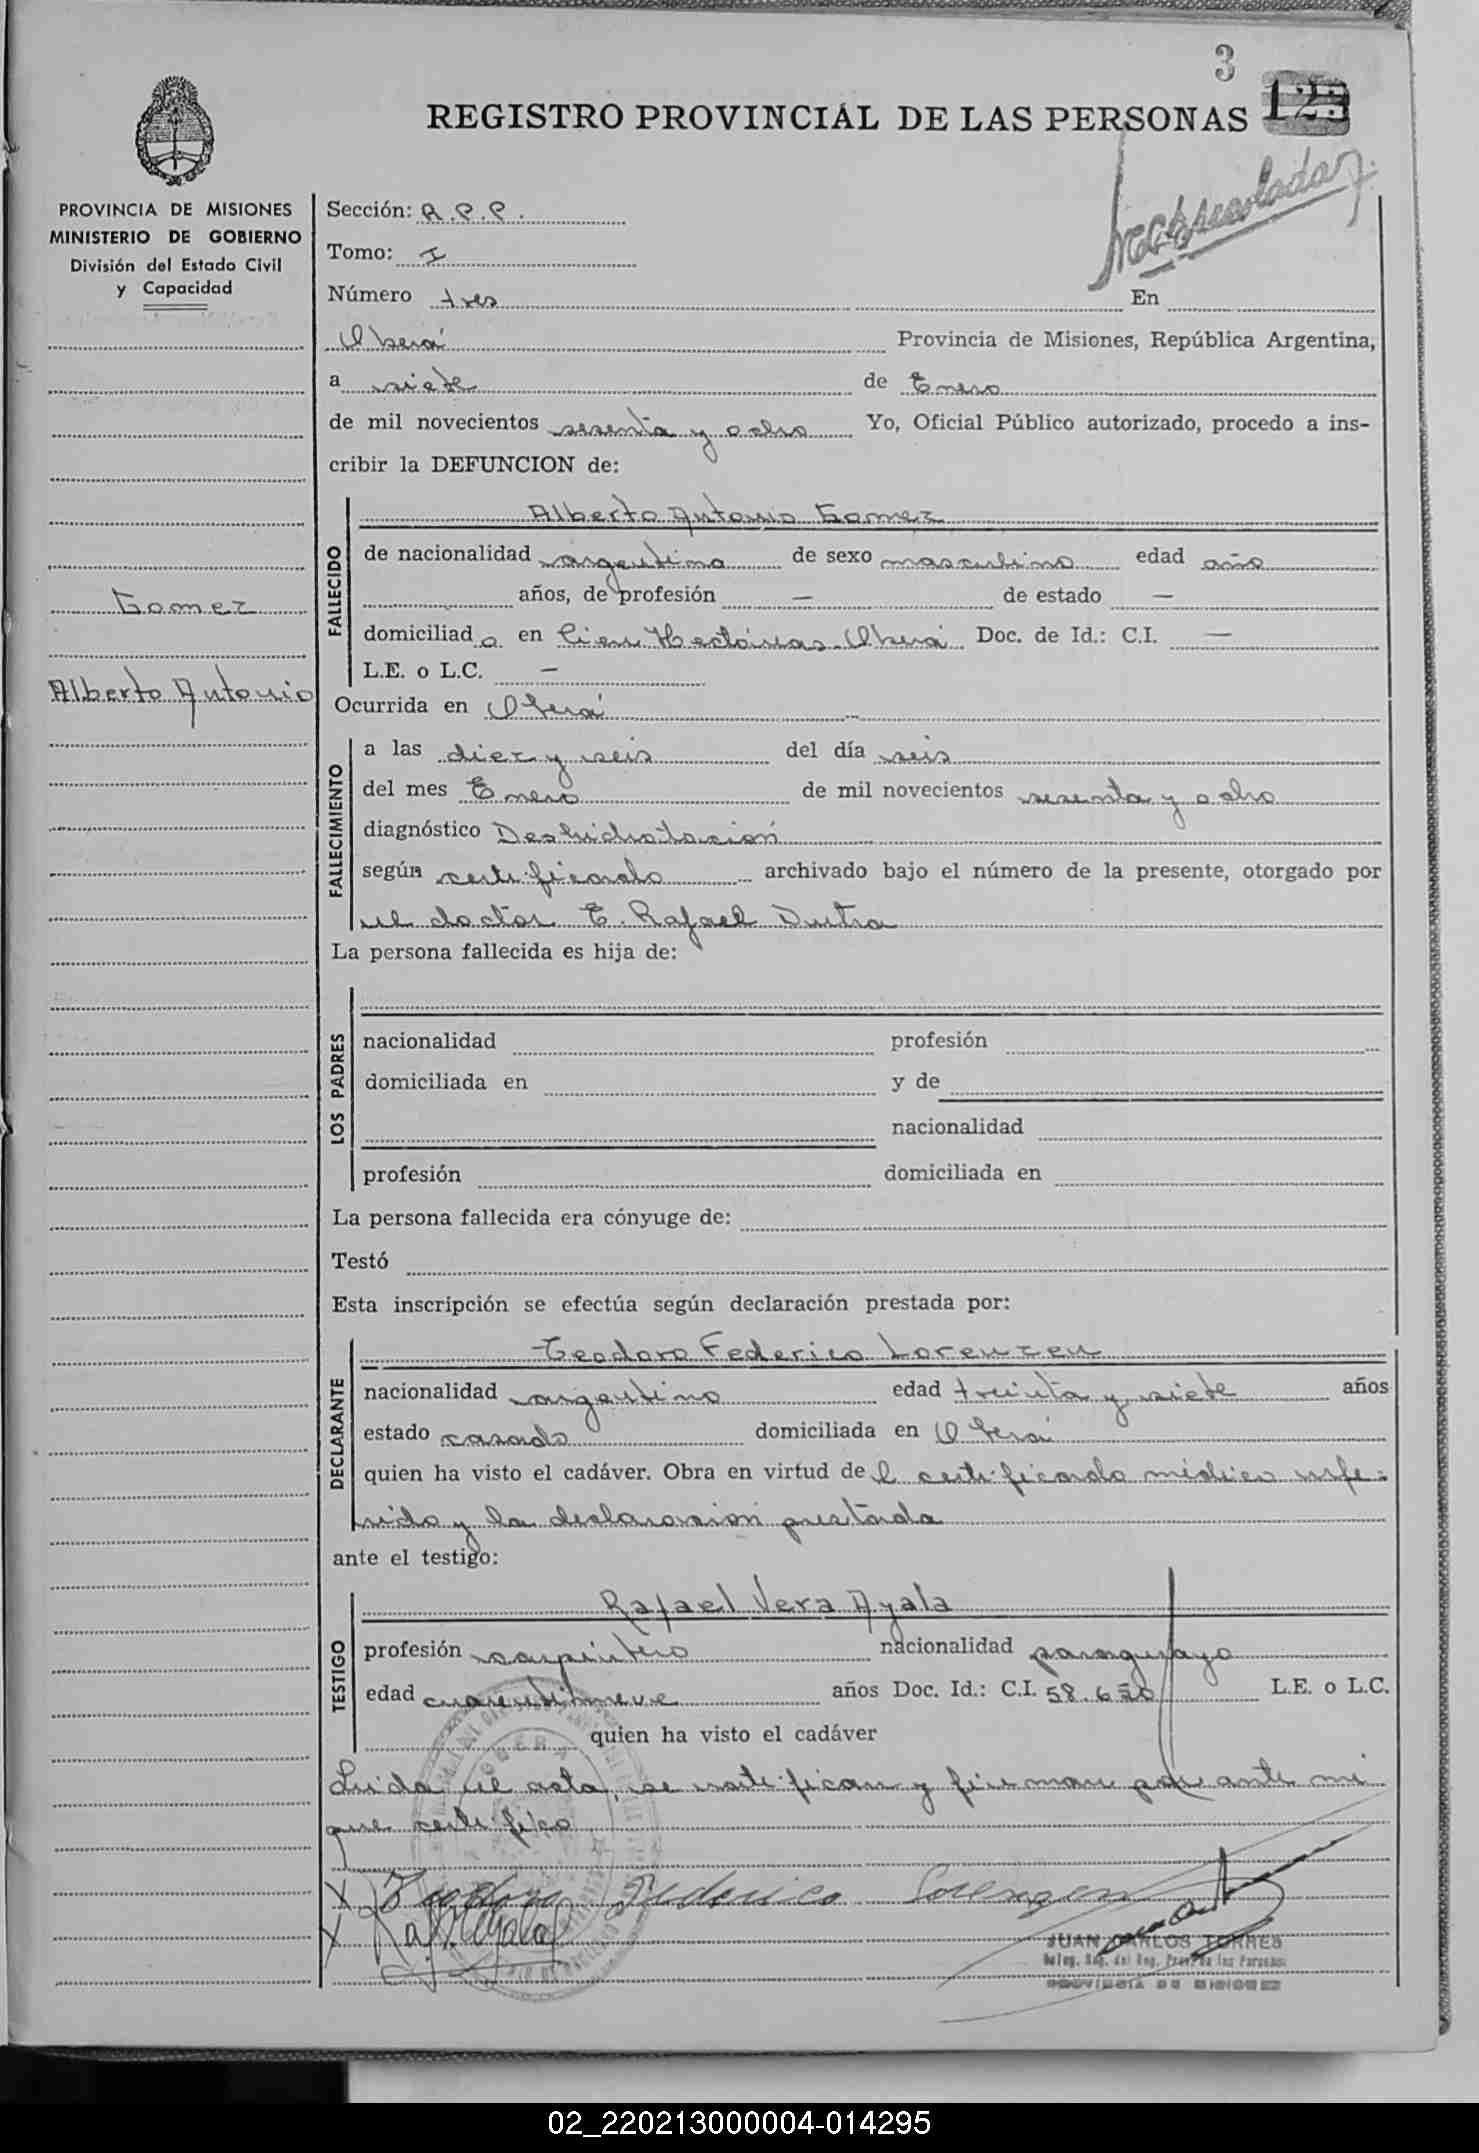 3
REGISTRO PROVINCIAL DE LAS PERSONAS 123
PROVINCIA DE MISIONES
MINISTERIO DE GOBIERNO
División del Estado Civil
y Capacidad
Gomez
Alberto Antonio
Sección: R.P.P.
Tomo: I
Número tres En
Oberá Provincia de Misiones, República Argentina,
a siete de Enero
de mil novecientos sesenta y ocho Yo, Oficial Público autorizado, procedo a ins-
cribir la DEFUNCION de:
FALLECIDO
Alberto Antonio Gomez
de nacionalidad argentina de sexo masculino edad año
años, de profesión — de estado —
domiciliado en Cien Hectáreas-Oberá Doc. de Id.: C.I. —
L.E. o L.C. —
Ocurrida en Oberá
FALLECIMIENTO
a las diez y seis del día seis
del mes Enero de mil novecientos sesenta y ocho
diagnóstico Deshidratación
según certificado archivado bajo el número de la presente, otorgado por
el doctor E. Rafael Dutra
La persona fallecida es hija de:
LOS PADRES
nacionalidad profesión
domiciliada en y de
nacionalidad
profesión domiciliada en
La persona fallecida era cónyuge de:
Testó
Esta inscripción se efectúa según declaración prestada por:
DECLARANTE
Teodoro Federico Lorenzen
nacionalidad argentino edad treinta y siete años
estado casado domiciliada en Oberá
quien ha visto el cadáver. Obra en virtud del certificado médico refe-
rido y la declaración prestada
ante el testigo:
TESTIGO
Rafael Vera Ayala
profesión carpintero nacionalidad paraguayo
edad años Doc. Id.: C.I. 58.620 L.E. o L.C.
quien ha visto el cadáver
Leida el acta, se ratifican y firman por ante mi
que certifico
X Teodoro Federico Lorenzen
X Raf. V. Ayala
JUAN CARLOS TORRES
PROVINCIA DE MISIONES
02_220213000004-014295